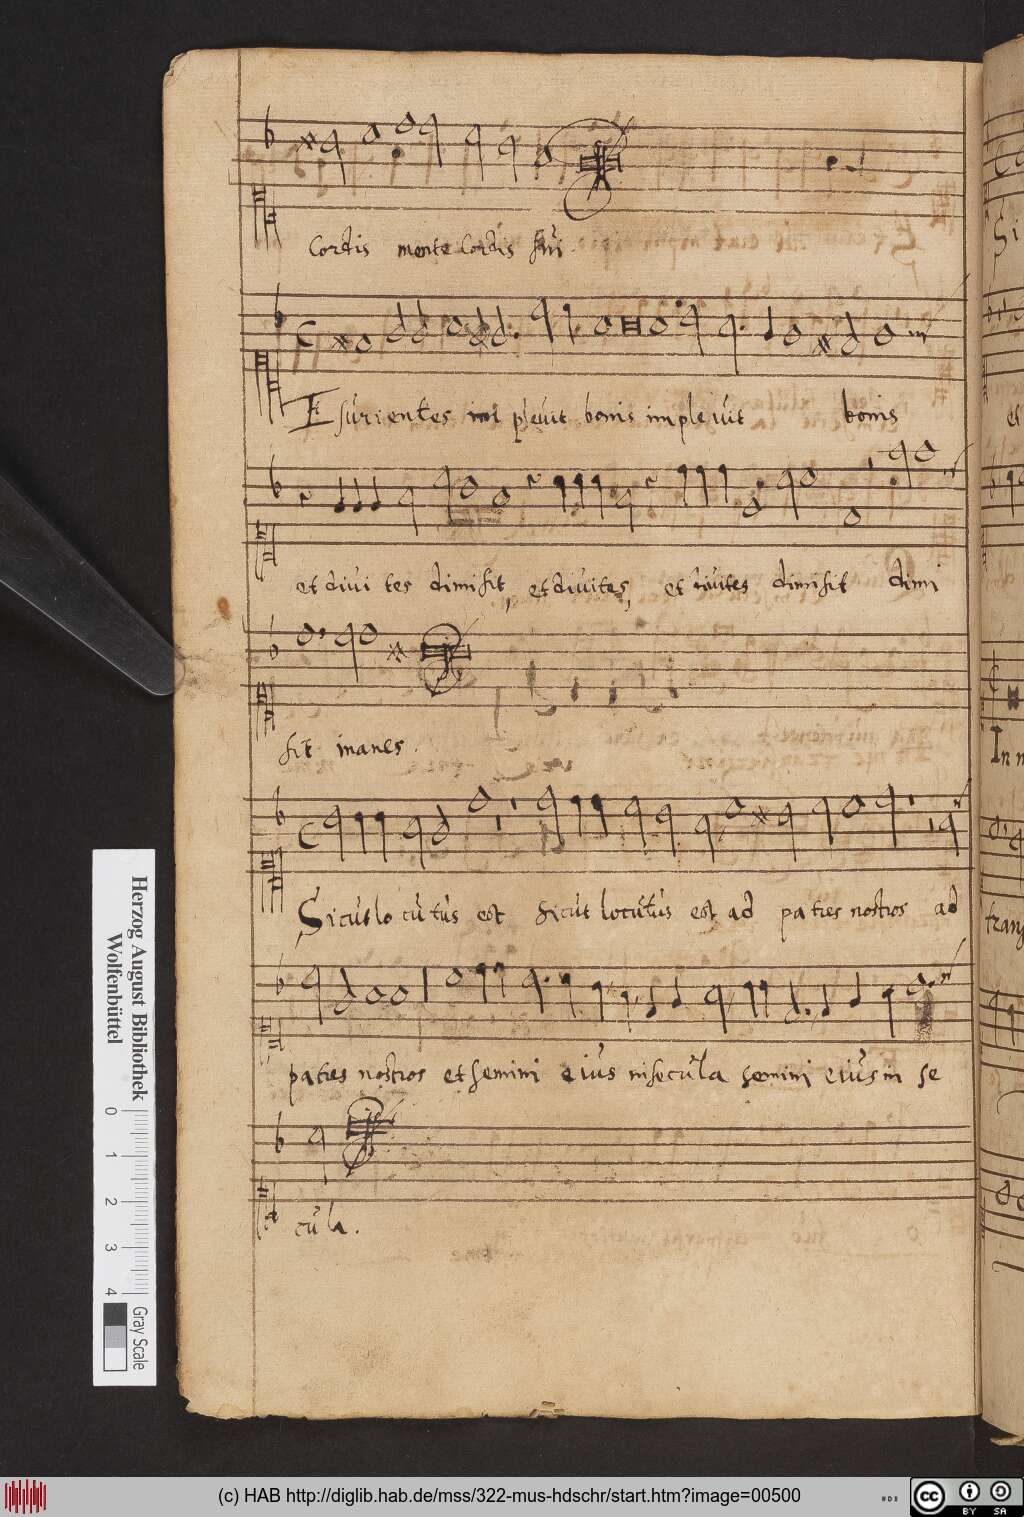 Cordis mente Cordis sui.
Esurientes implevit bonis implevit bonis
et divites dimisit, et divites, et divites dimisit dimi
sit inanes.
Sicut locutus est sicut locutus est ad patres nostros ad
patres nostros et semini eius in secula semini eius in se
cula.
Si
et
In m
trans
Herzog August Bibliothek
Wolfenbüttel
0 1 2 3 4
Gray Scale
(c) HAB http://diglib.hab.de/mss/322-mus-hdschr/start.htm?image=00500
cc BY SA